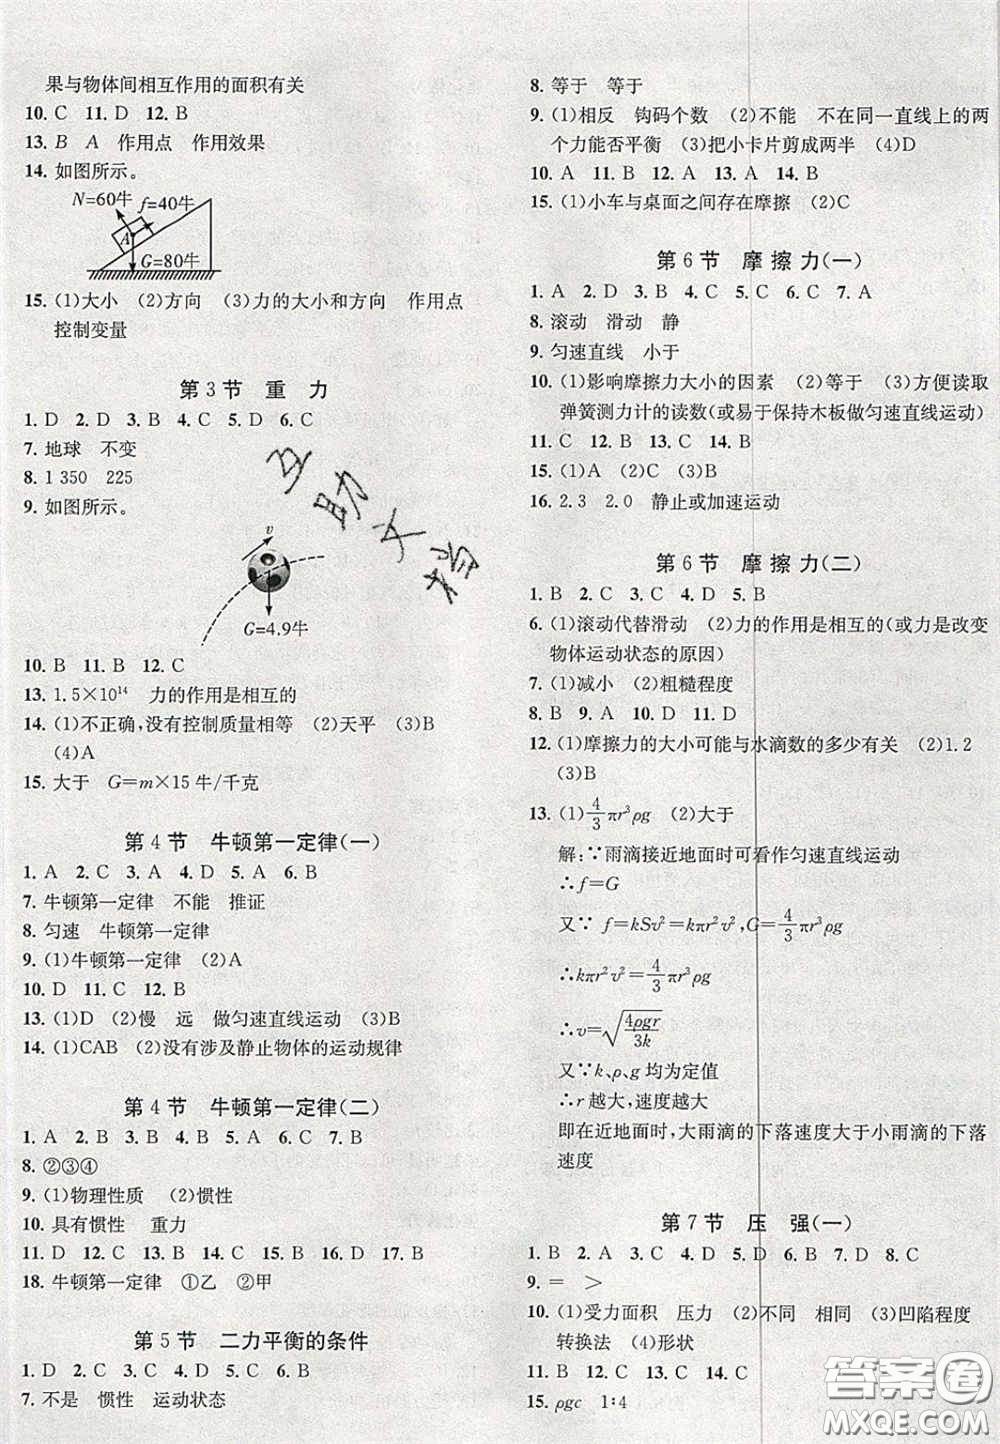 果与物体间相互作用的面积有关
10. C 11. D 12. B
13. B A 作用点 作用效果
14. 如图所示。
N=60牛 f=40牛
A
G=80牛
15. (1)大小 (2)方向 (3)力的大小和方向 作用点
控制变量
第3节 重 力
1. D 2. D 3. B 4. C 5. D 6. C
7. 地球 不变
8. 1 350 225
9. 如图所示。
v
G=4.9牛
10. B 11. B 12. C
13. 1.5×10¹⁴ 力的作用是相互的
14. (1)不正确,没有控制质量相等 (2)天平 (3)B
(4)A
15. 大于 G=m×15 牛/千克
第4节 牛顿第一定律(一)
1. A 2. C 3. A 4. D 5. A 6. C
7. 牛顿第一定律 不能 推证
8. 匀速 牛顿第一定律
9. (1)牛顿第一定律 (2)A
10. D 11. C 12. B
13. (1)D (2)慢 远 做匀速直线运动 (3)B
14. (1)CAB (2)没有涉及静止物体的运动规律
第4节 牛顿第一定律(二)
1. A 2. B 3. C 4. C 5. D 6. D 7. A
8. ②③④
9. (1)物理性质 (2)惯性
10. 具有惯性 重力
11. D 12. C 13. C 14. B 15. C 16. D 17. B
18. 牛顿第一定律 ①乙 ②甲
第5节 二力平衡的条件
1. D 2. C 3. D 4. D 5. D 6. A
7. 不是 惯性 运动状态
8. 等于 等于
9. (1)相反 钩码个数 (2)不能 不在同一直线上的两
个力能否平衡 (3)把小卡片剪成两半 (4)D
10. A 11. B 12. A 13. A 14. B
15. (1)小车与桌面之间存在摩擦 (2)C
第6节 摩擦力(一)
1. A 2. D 3. D 4. B 5. C 6. C 7. A
8. 滚动 滑动 静
9. 匀速直线 小于
10. (1)影响摩擦力大小的因素 (2)等于 (3)方便读取
弹簧测力计的读数(或易于保持木板做匀速直线运动)
11. C 12. B 13. C 14. B
15. (1)A (2)C (3)B
16. 2.3 2.0 静止或加速运动
第6节 摩擦力(二)
1. B 2. C 3. C 4. B 5. D
6. (1)滚动代替滑动 (2)力的作用是相互的(或力是改变
物体运动状态的原因)
7. (1)减小 (2)粗糙程度
8. B 9. B 10. D 11. D
12. (1)摩擦力的大小可能与水滴数的多少有关 (2)1.2
(3)B
13. (1)4/3πr³ρg (2)大于
解:∵雨滴接近地面时可看作匀速直线运动
∴f=G
又∵f=kSv²=kπr²v²,G=4/3πr³ρg
∴kπr²v²=4/3πr³ρg
∴v=√(4ρgr/3k)
又∵k、ρ、g 均为定值
∴r 越大,速度越大
即在近地面时,大雨滴的下落速度大于小雨滴的下落
速度
第7节 压 强(一)
1. B 2. A 3. C 4. D 5. D 6. B 7. A 8. C
9. = >
10. (1)受力面积 压力 (2)不同 相同 (3)凹陷程度
转换法 (4)形状
11. B 12. C 13. C 14. C
15. ρgc 1∶4
互助文档
答案圈
MXQE.COM